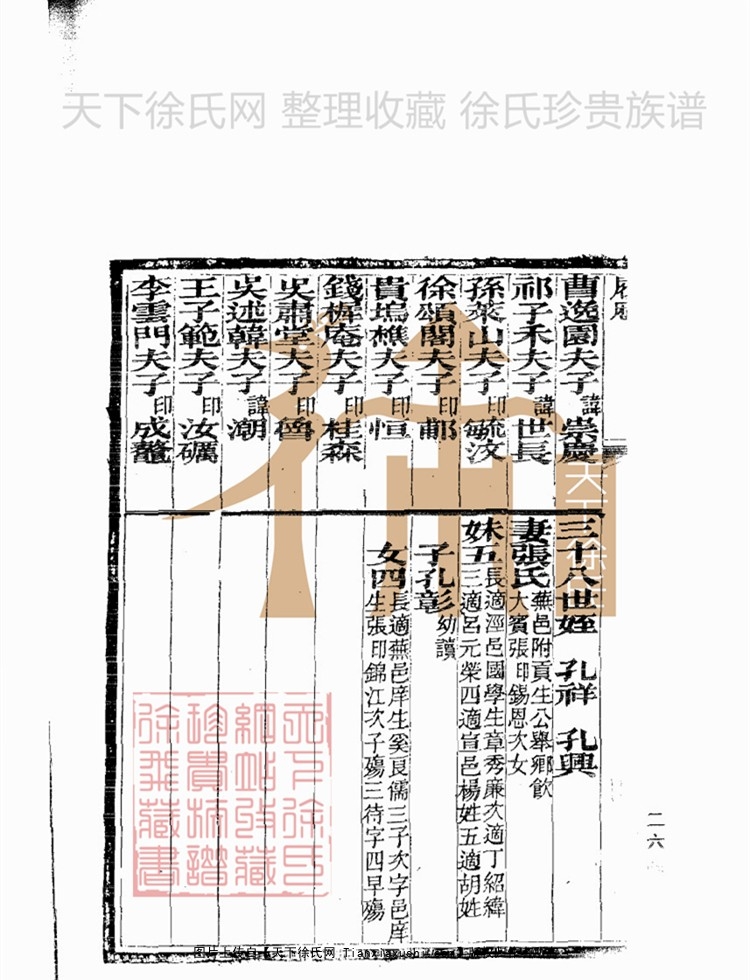 天下徐氏网 整理收藏 徐氏珍贵族谱
曹逸園夫子諱崇慶
祁子禾夫子諱世長
孫萊山夫子印毓汶
徐頌閣夫子印郙
貴塢樵夫子印恒
錢樨庵夫子印桂森
史肅堂夫子印魯
吳述韓夫子諱潮
王子範夫子印汝礪
李雲門夫子印成鼇
三十八世姪 孔祥 孔興
妻張氏 蕪邑附貢生公舉鄉飲
大賓張印錫恩次女
妹五 長適涇邑國學生章秀廉次適丁紹緯
三適呂元榮四適宣邑楊姓五適胡姓
子孔彰 幼讀
女四 長適蕪邑庠生奚良儒三子次字邑庠
生張印錦江次子殤三待字四早殤
二六
天下徐氏
天下徐氏
網站收藏
珍貴族譜
徐葉藏書
图片上传自 天下徐氏网